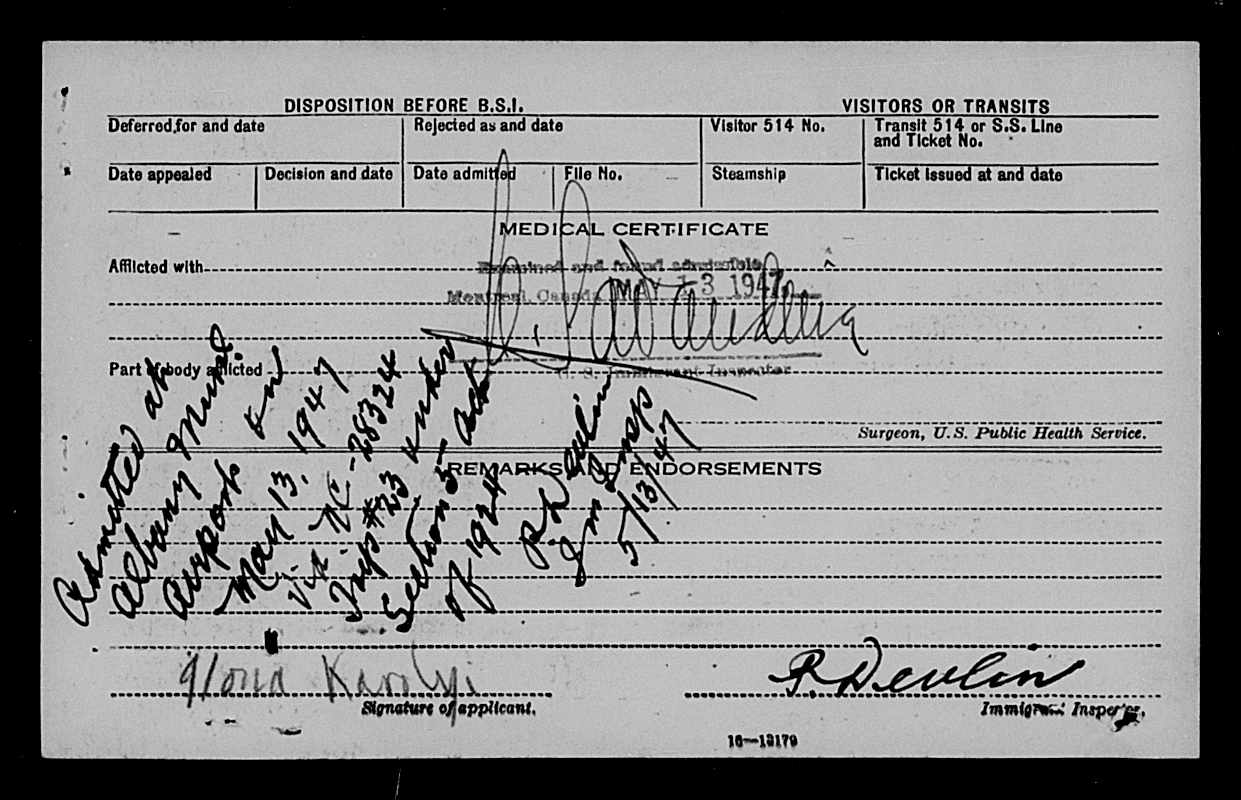 DISPOSITION BEFORE B.S.I.
VISITORS OR TRANSITS
Deferred, for and date
Rejected as and date
Visitor 514 No.
Transit 514 or S.S. Line
and Ticket No.
Date appealed
Decision and date
Date admitted
File No.
Steamship
Ticket issued at and date
MEDICAL CERTIFICATE
Afflicted with
Examined and found admissible
Montreal, Canada MAY 13 1947
U. S. Immigrant Inspector
Part of body afflicted
Surgeon, U.S. Public Health Service.
REMARKS AND ENDORSEMENTS
Admitted at
Albany
Airport on
May 13, 1947
Via NC-28324
Trip #23 under
Section 5 - Act
of 1924
R Devlin
Im Insp
5/13/47
Ilona Karolyi
Signature of applicant.
R. Devlin
Immigrant Inspector.
16—13179